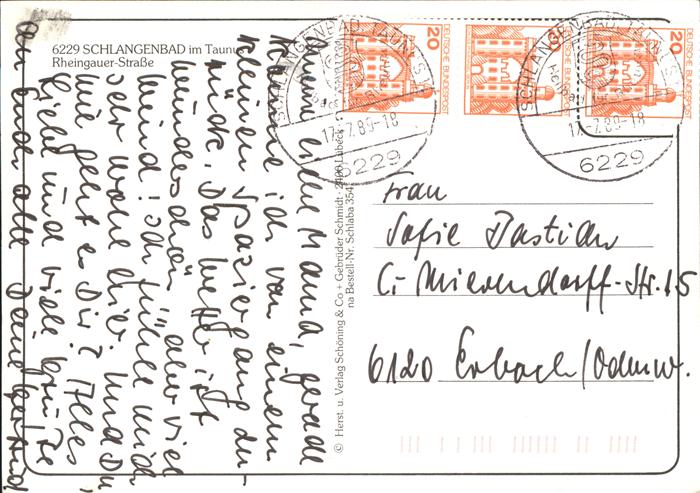 6229 SCHLANGENBAD im Taunus
Rheingauer-Straße
Meine liebe Mama, gerade
komme ich von einem
kleinen Spaziergang zu-
rück. Das Wetter ist
wunderschön, aber viel
Wind! Ich fühle mich
sehr wohl hier. Und Du
wie geht es Dir? Alles
Liebe und viele Grüße
an Euch alle Deine Gertrud
© Herst. u. Verlag Schöning & Co + Gebrüder Schmidt · 2400 Lübeck
na Bestell-Nr. Schlaba 354
20
DEUTSCHE BUNDESPOST
DEUTSCHE BUNDESPOST
20
DEUTSCHE BUNDESPOST
SCHLANGENBAD, TAUNUS 1
17.7.89-18
6229
SCHLANGENBAD, TAUNUS 1
17.7.89-18
6229
Frau
Sofie Bastian
C.-Mierendorff-Str. 15
6120 Erbach/Odenw.